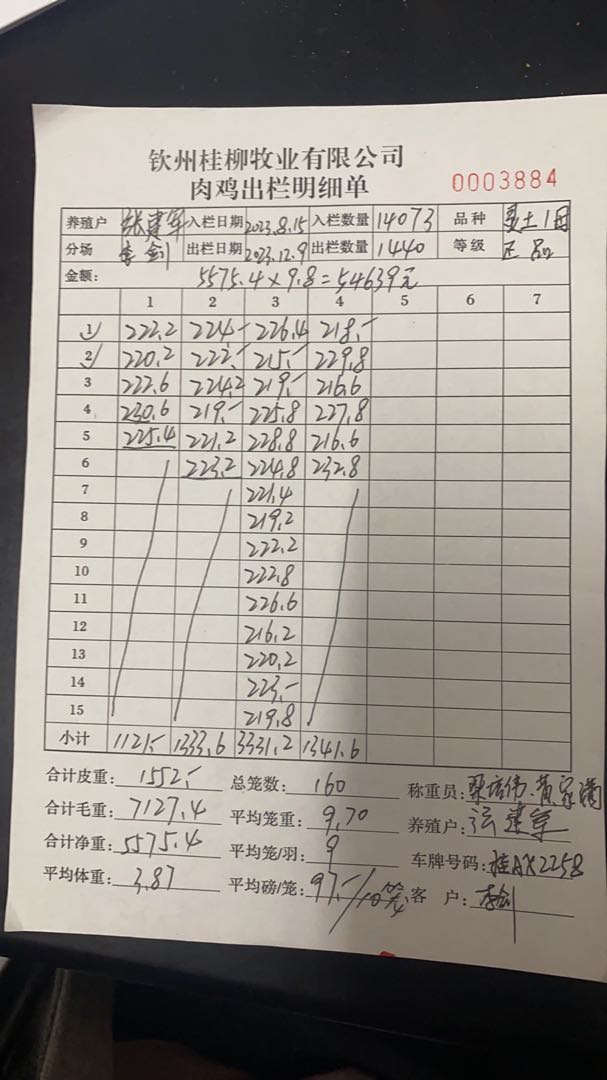 钦州桂柳牧业有限公司
肉鸡出栏明细单 0003884
养殖户 张建军 入栏日期 2023.8.15 入栏数量 14073 品种 土1母
分场 李剑 出栏日期 2023.12.9 出栏数量 1440 等级 正品
金额: 5575.4×9.8=54639元
1 2 3 4 5 6 7
1 222.2 224.- 226.4 218.-
2 220.2 222.- 215.- 229.8
3 222.6 224.2 219.- 216.6
4 230.6 219.- 225.8 227.8
5 225.4 221.2 228.8 216.6
6 223.2 224.8 232.8
7 221.4
8 219.2
9 222.2
10 222.8
11 226.6
12 216.2
13 220.2
14 223.-
15 219.8
小计 1121.- 1333.6 3331.2 1341.6
合计皮重: 1552.- 总笼数: 160 称重员:
合计毛重: 7127.4 平均笼重: 9.70 养殖户: 张建军
合计净重: 5575.4 平均笼/羽: 9 车牌号码: 桂AX2258
平均体重: 3.87 平均磅/笼: 97.-/10笼 客 户: 李剑